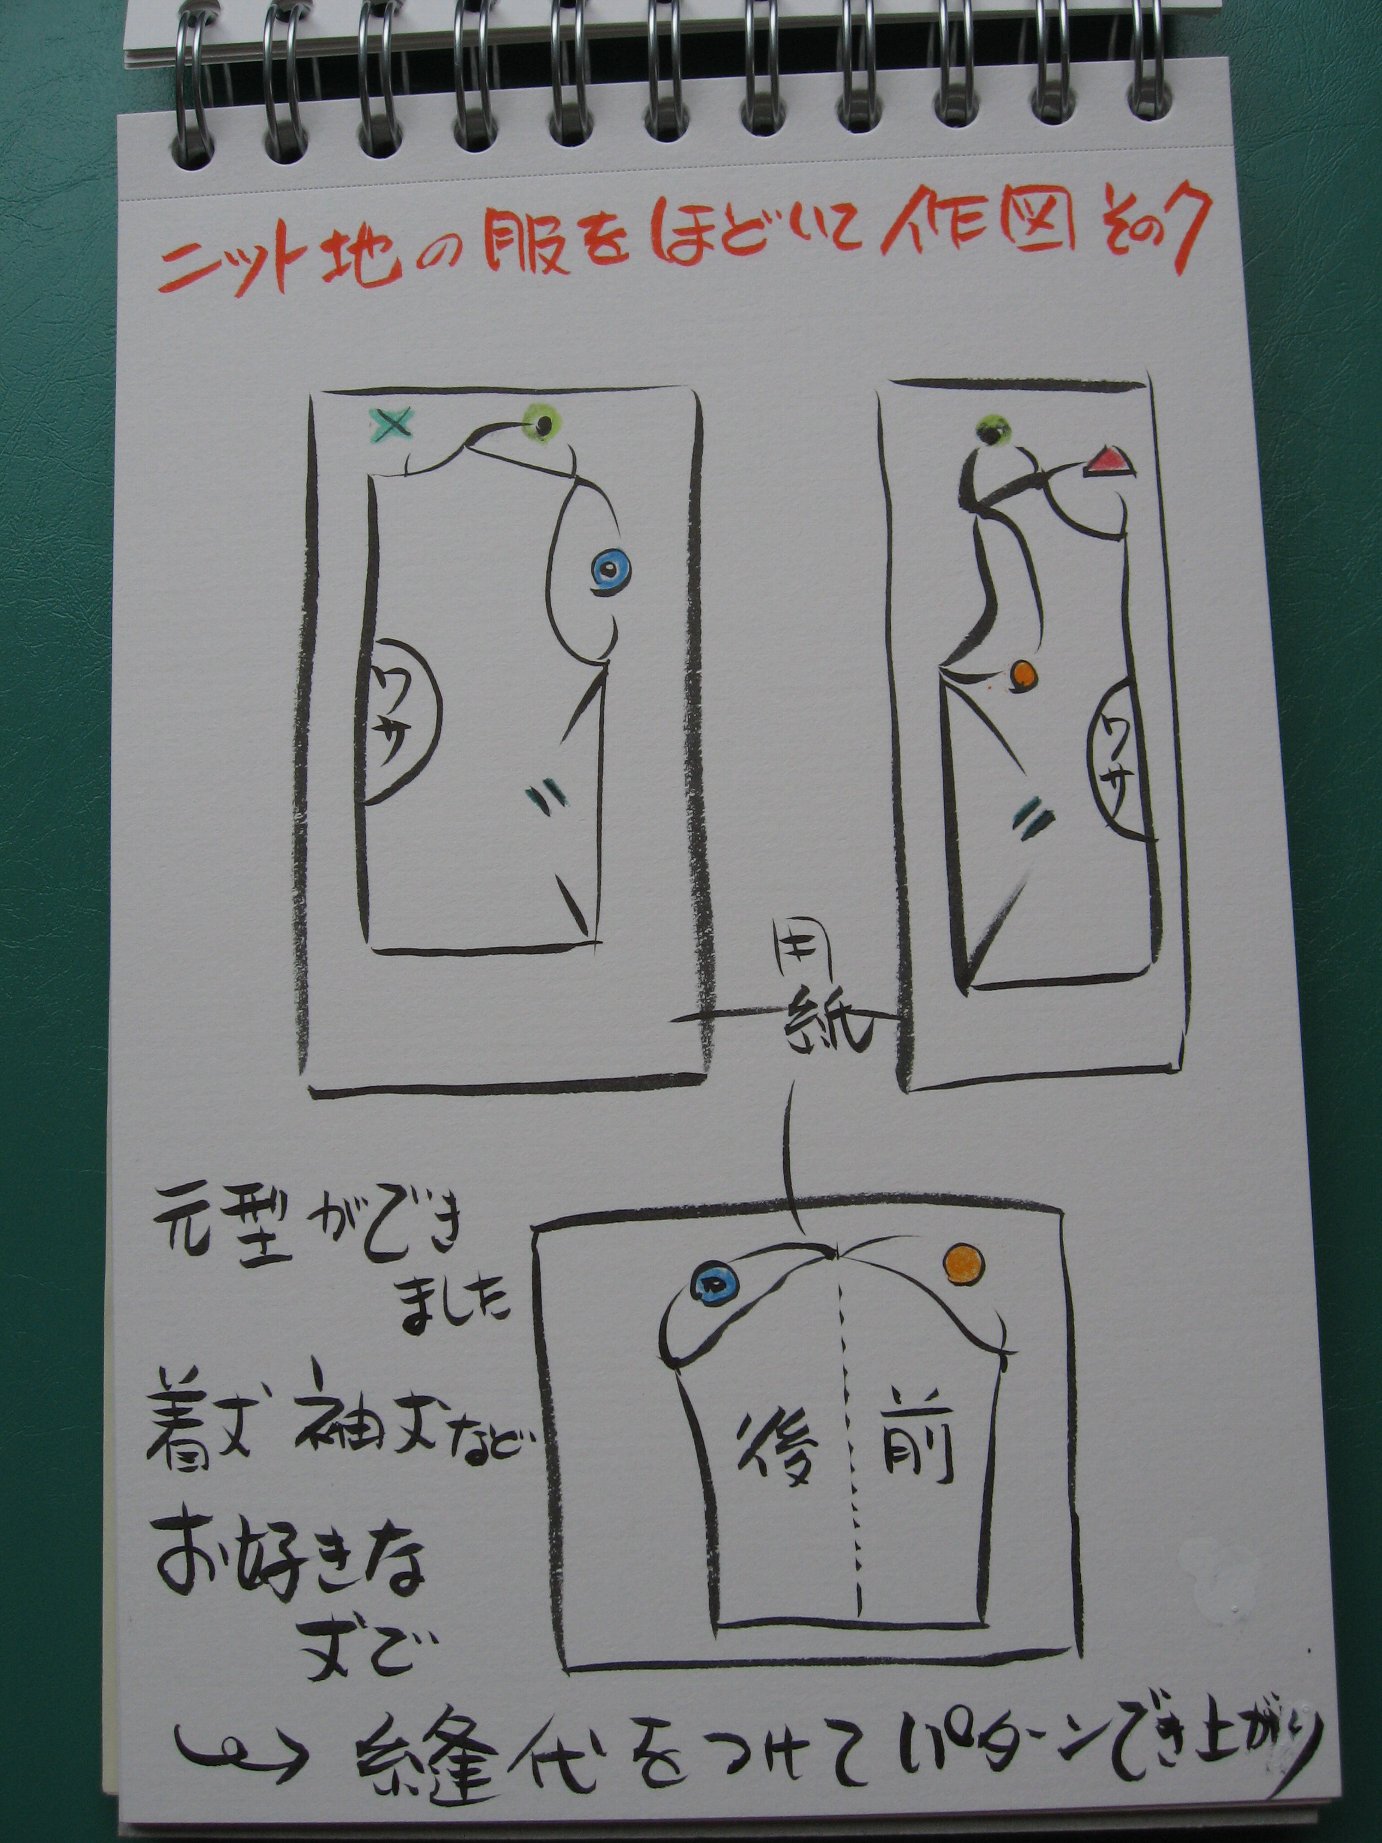 ニット地の服をほどいて作図その7
ワサ
ワサ
用紙
元型ができ
ました
後
前
着丈 袖丈など
お好きな
丈で
縫代をつけてパターンでき上がり